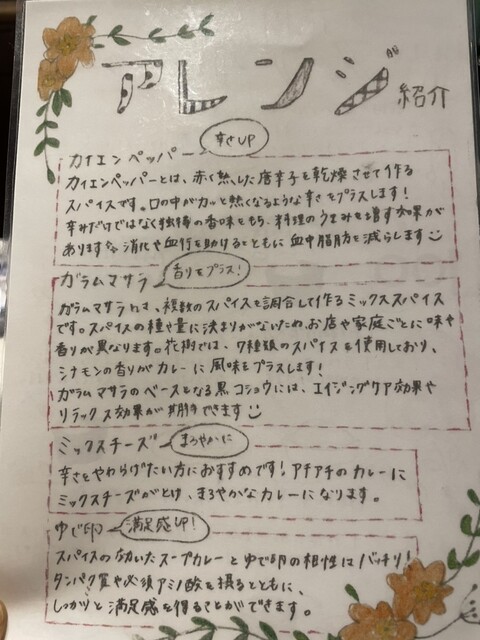 アレンジ紹介
カイエンペッパー 辛さUP
カイエンペッパーとは、赤く熟した唐辛子を乾燥させて作る
スパイスです。口の中がカッと熱くなるような辛さをプラスします!
辛みだけではなく独特の香味をもち、料理のうまみを増す効果が
あります 消化や血行を助けるとともに血中脂肪を減らします
ガラムマサラ 香りをプラス!
ガラムマサラは、複数のスパイスを調合して作るミックススパイス
です。スパイスの種や量に決まりがないため、お店や家庭ごとに味や
香りが異なります。花樹では、7種類のスパイスを使用しており、
シナモンの香りがカレーに風味をプラスします!
ガラムマサラのベースとなる黒コショウには、エイジングケア効果や
リラックス効果が期待できます
ミックスチーズ まろやかに
辛さをやわらげたい方におすすめです!アチアチのカレーに
ミックスチーズがとけ、まろやかなカレーになります。
ゆで卵 満足感UP!
スパイスの効いたスープカレーとゆで卵の相性はバッチリ!
タンパク質や必須アミノ酸を摂るとともに、
しっかりと満足感を得ることができます。